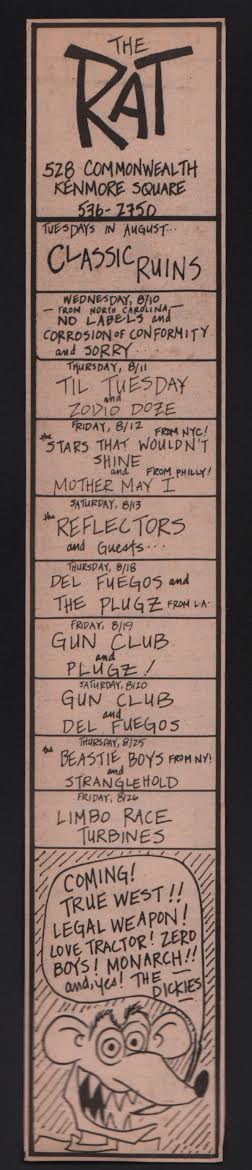 THE
RAT
528 COMMONWEALTH
KENMORE SQUARE
536-2750
TUESDAYS IN AUGUST...
CLASSIC RUINS
WEDNESDAY, 8/10
— FROM NORTH CAROLINA,—
NO LABELS and
CORROSION OF CONFORMITY
and SORRY....
THURSDAY, 8/11
TIL TUESDAY
and
ZODIO DOZE
FRIDAY, 8/12 FROM NYC!
the STARS THAT WOULDN'T
SHINE
and FROM PHILLY!
MOTHER MAY I
SATURDAY, 8/13
the REFLECTORS
and Guests...
THURSDAY, 8/18
DEL FUEGOS and
THE PLUGZ FROM L.A.
FRIDAY, 8/19
GUN CLUB
and
PLUGZ!
SATURDAY, 8/20
GUN CLUB
and
DEL FUEGOS
THURSDAY, 8/25
the BEASTIE BOYS FROM NY!
and
STRANGLEHOLD
FRIDAY, 8/26
LIMBO RACE
TURBINES
COMING!
TRUE WEST!!
LEGAL WEAPON!
LOVE TRACTOR! ZERO
BOYS! MONARCH!!
and, yes! THE
DICKIES